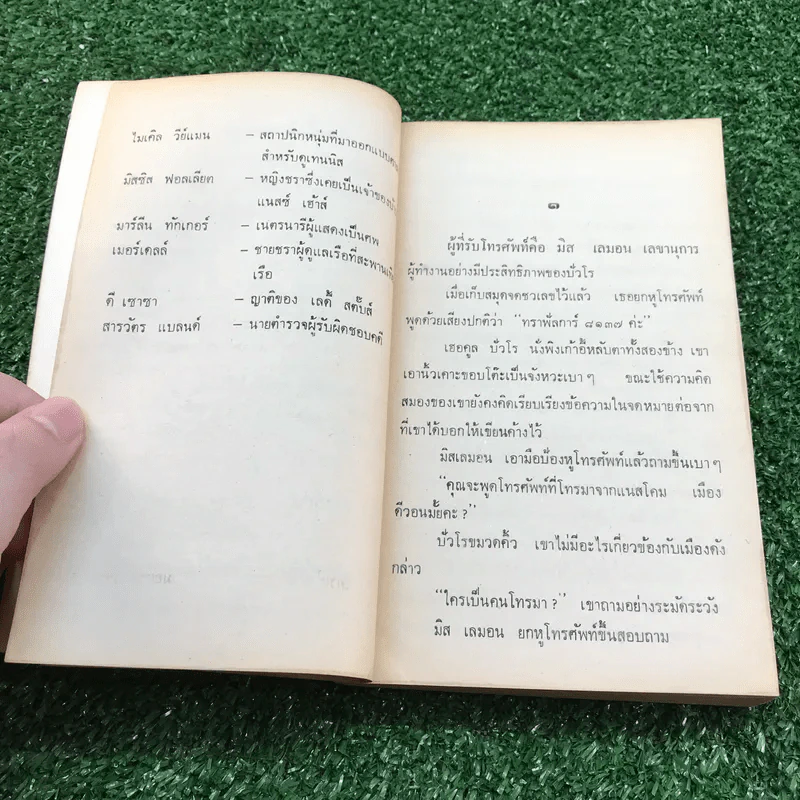 ไมเคิล วีย์แมน – สถาปนิกหนุ่มที่มาออกแบบ
สำหรับคูเทนนิส
มิสซิส ฟอลเลียต – หญิงชราซึ่งเคยเป็นเจ้าของ
แนสซ์ เฮ้าส์
มาร์ลีน ทักเกอร์ – เนตรนารีผู้แสดงเป็นศพ
เมอร์เดลล์ – ชายชราผู้ดูแลเรือที่สะพาน
เรือ
ดี เซาซา – ญาติของ เลดี้ สตับส์
สารวัตร แบลนด์ – นายตำรวจผู้รับผิดชอบคดี
๑
ผู้ที่รับโทรศัพท์คือ มิส เลมอน เลขานุการ
ผู้ทำงานอย่างมีประสิทธิภาพของปัวโร
เมื่อเก็บสมุดจดชวเลขไว้แล้ว เธอยกหูโทรศัพท์
พูดด้วยเสียงปกติว่า “ทราฟัลการ์ ๘๑๓๗ ค่ะ”
เฮอคูล ปัวโร นั่งพิงเก้าอี้หลับตาทั้งสองข้าง เขา
เอานิ้วเคาะขอบโต๊ะเป็นจังหวะเบา ๆ ขณะใช้ความคิด
สมองของเขายังคงคิดเรียบเรียงข้อความในจดหมายต่อจาก
ที่เขาได้บอกให้เขียนค้างไว้
มิสเลมอน เอามือป้องหูโทรศัพท์แล้วถามขึ้นเบา ๆ
“คุณจะพูดโทรศัพท์ที่โทรมาจากแนสโคม เมือง
ดีวอนมั้ยคะ ?”
ปัวโรขมวดคิ้ว เขาไม่มีอะไรเกี่ยวข้องกับเมืองดัง
กล่าว
“ใครเป็นคนโทรมา ?” เขาถามอย่างระมัดระวัง
มิส เลมอน ยกหูโทรศัพท์ขึ้นสอบถาม